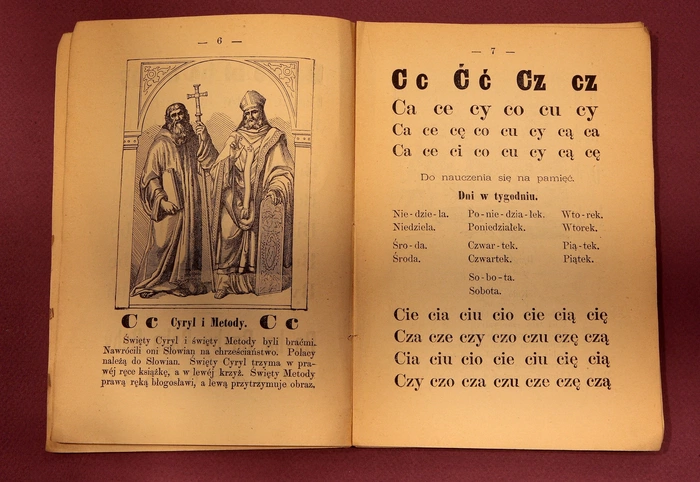 — 6 —
C c Cyryl i Metody. C c
Święty Cyryl i święty Metody byli braćmi.
Nawrócili oni Słowian na chrześciaństwo. Polacy
należą do Słowian. Święty Cyryl trzyma w pra-
wéj ręce książkę, a w lewéj krzyż. Święty Metody
prawą ręką błogosławi, a lewą przytrzymuje obraz.
— 7 —
C c Ć ć Cz cz
Ca ce cy co cu cy
Ca ce cę co cu cy cą ca
Ca ce ci co cu cy cą cę
Do nauczenia się na pamięć.
Dni w tygodniu.
Nie-dzie-la. Po-nie-dzia-łek. Wto-rek.
Niedziela. Poniedziałek. Wtorek.
Śro-da. Czwar-tek. Pią-tek.
Środa. Czwartek. Piątek.
So-bo-ta.
Sobota.
Cie cia ciu cio cie cią cię
Cza cze czy czo czu czę czą
Cia ciu cio cie ciu cię cią
Czy czo cza czu cze czę czą